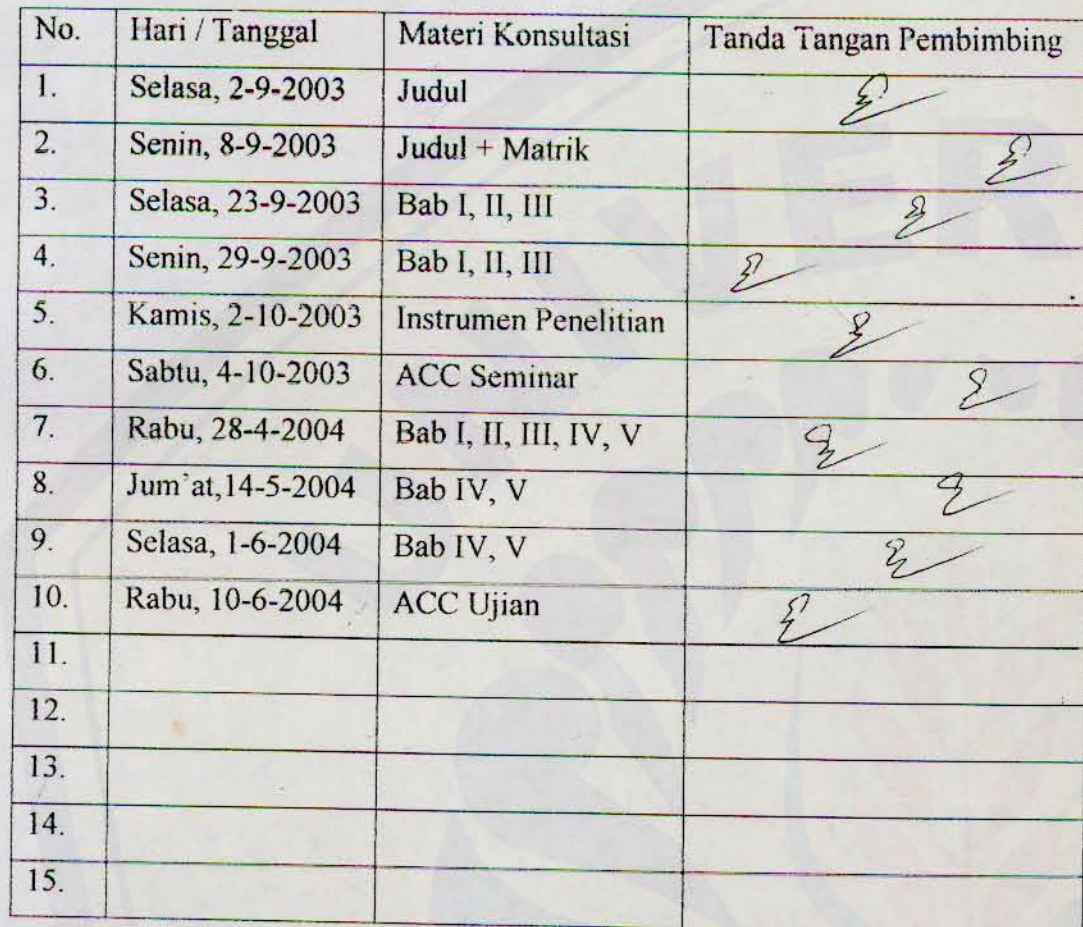 No. Hari / Tanggal Materi Konsultasi Tanda Tangan Pembimbing
1. Selasa, 2-9-2003 Judul
2. Senin, 8-9-2003 Judul + Matrik
3. Selasa, 23-9-2003 Bab I, II, III
4. Senin, 29-9-2003 Bab I, II, III
5. Kamis, 2-10-2003 Instrumen Penelitian
6. Sabtu, 4-10-2003 ACC Seminar
7. Rabu, 28-4-2004 Bab I, II, III, IV, V
8. Jum'at,14-5-2004 Bab IV, V
9. Selasa, 1-6-2004 Bab IV, V
10. Rabu, 10-6-2004 ACC Ujian
11.
12.
13.
14.
15.